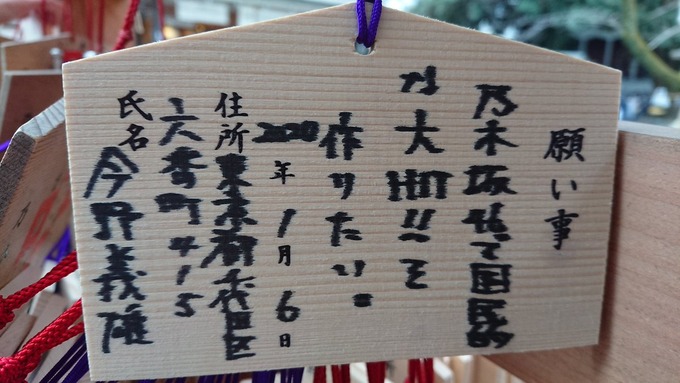 願い事
乃木坂46で国民的
な大HIT!!を
作りたい。
2020年1月6日
住所東京都千代田区
六番町4-5
氏名今野義雄